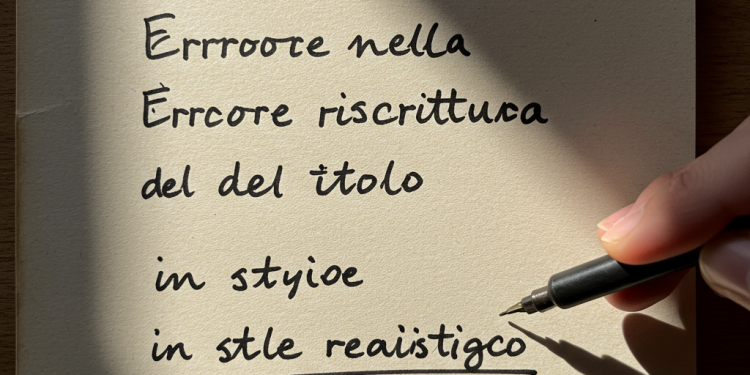 Errrooτe nella
Èrrcore riscrittuxa
del del itolo
in styioe
in stle reaiïstigco